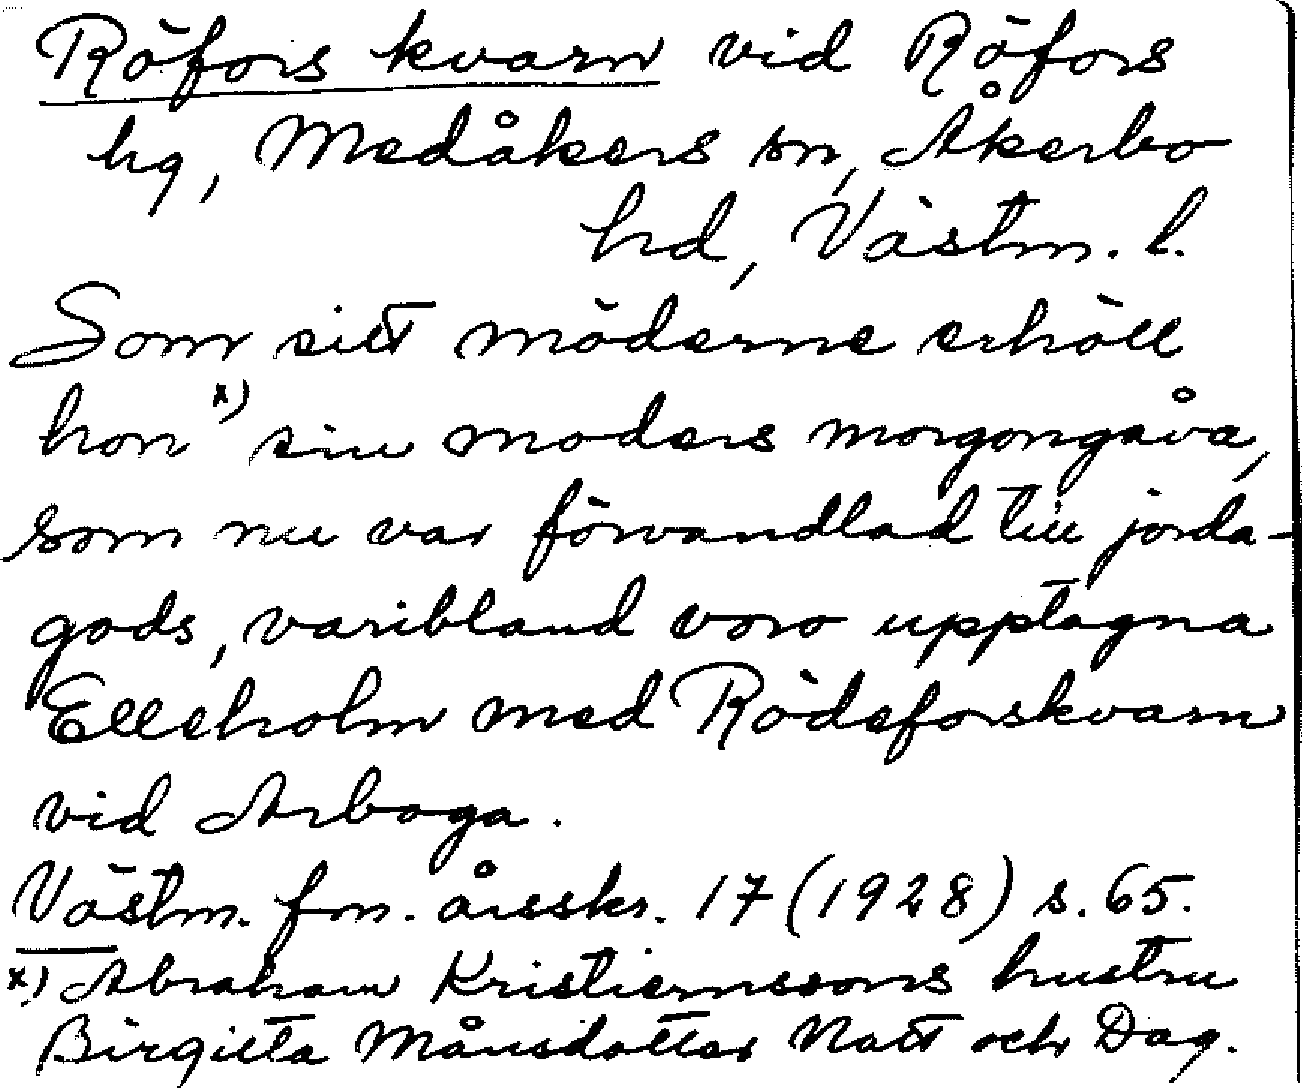 Röfors kvarn vid Röfors
hg, Medåkers sn, Åkerbo
hd, Västm. l.
Som sitt möderne erhöll
hon x) sin moders morgongåva,
som nu var förvandlad till jorda-
gods, varibland voro upptagna
Elleholm med Rödeforskvarn
vid Arboga.
Västm. fm. årsskr. 17 (1928) s. 65.
x) Abraham Kristiernssons hustru
Birgitta Månsdotter Natt och Dag.